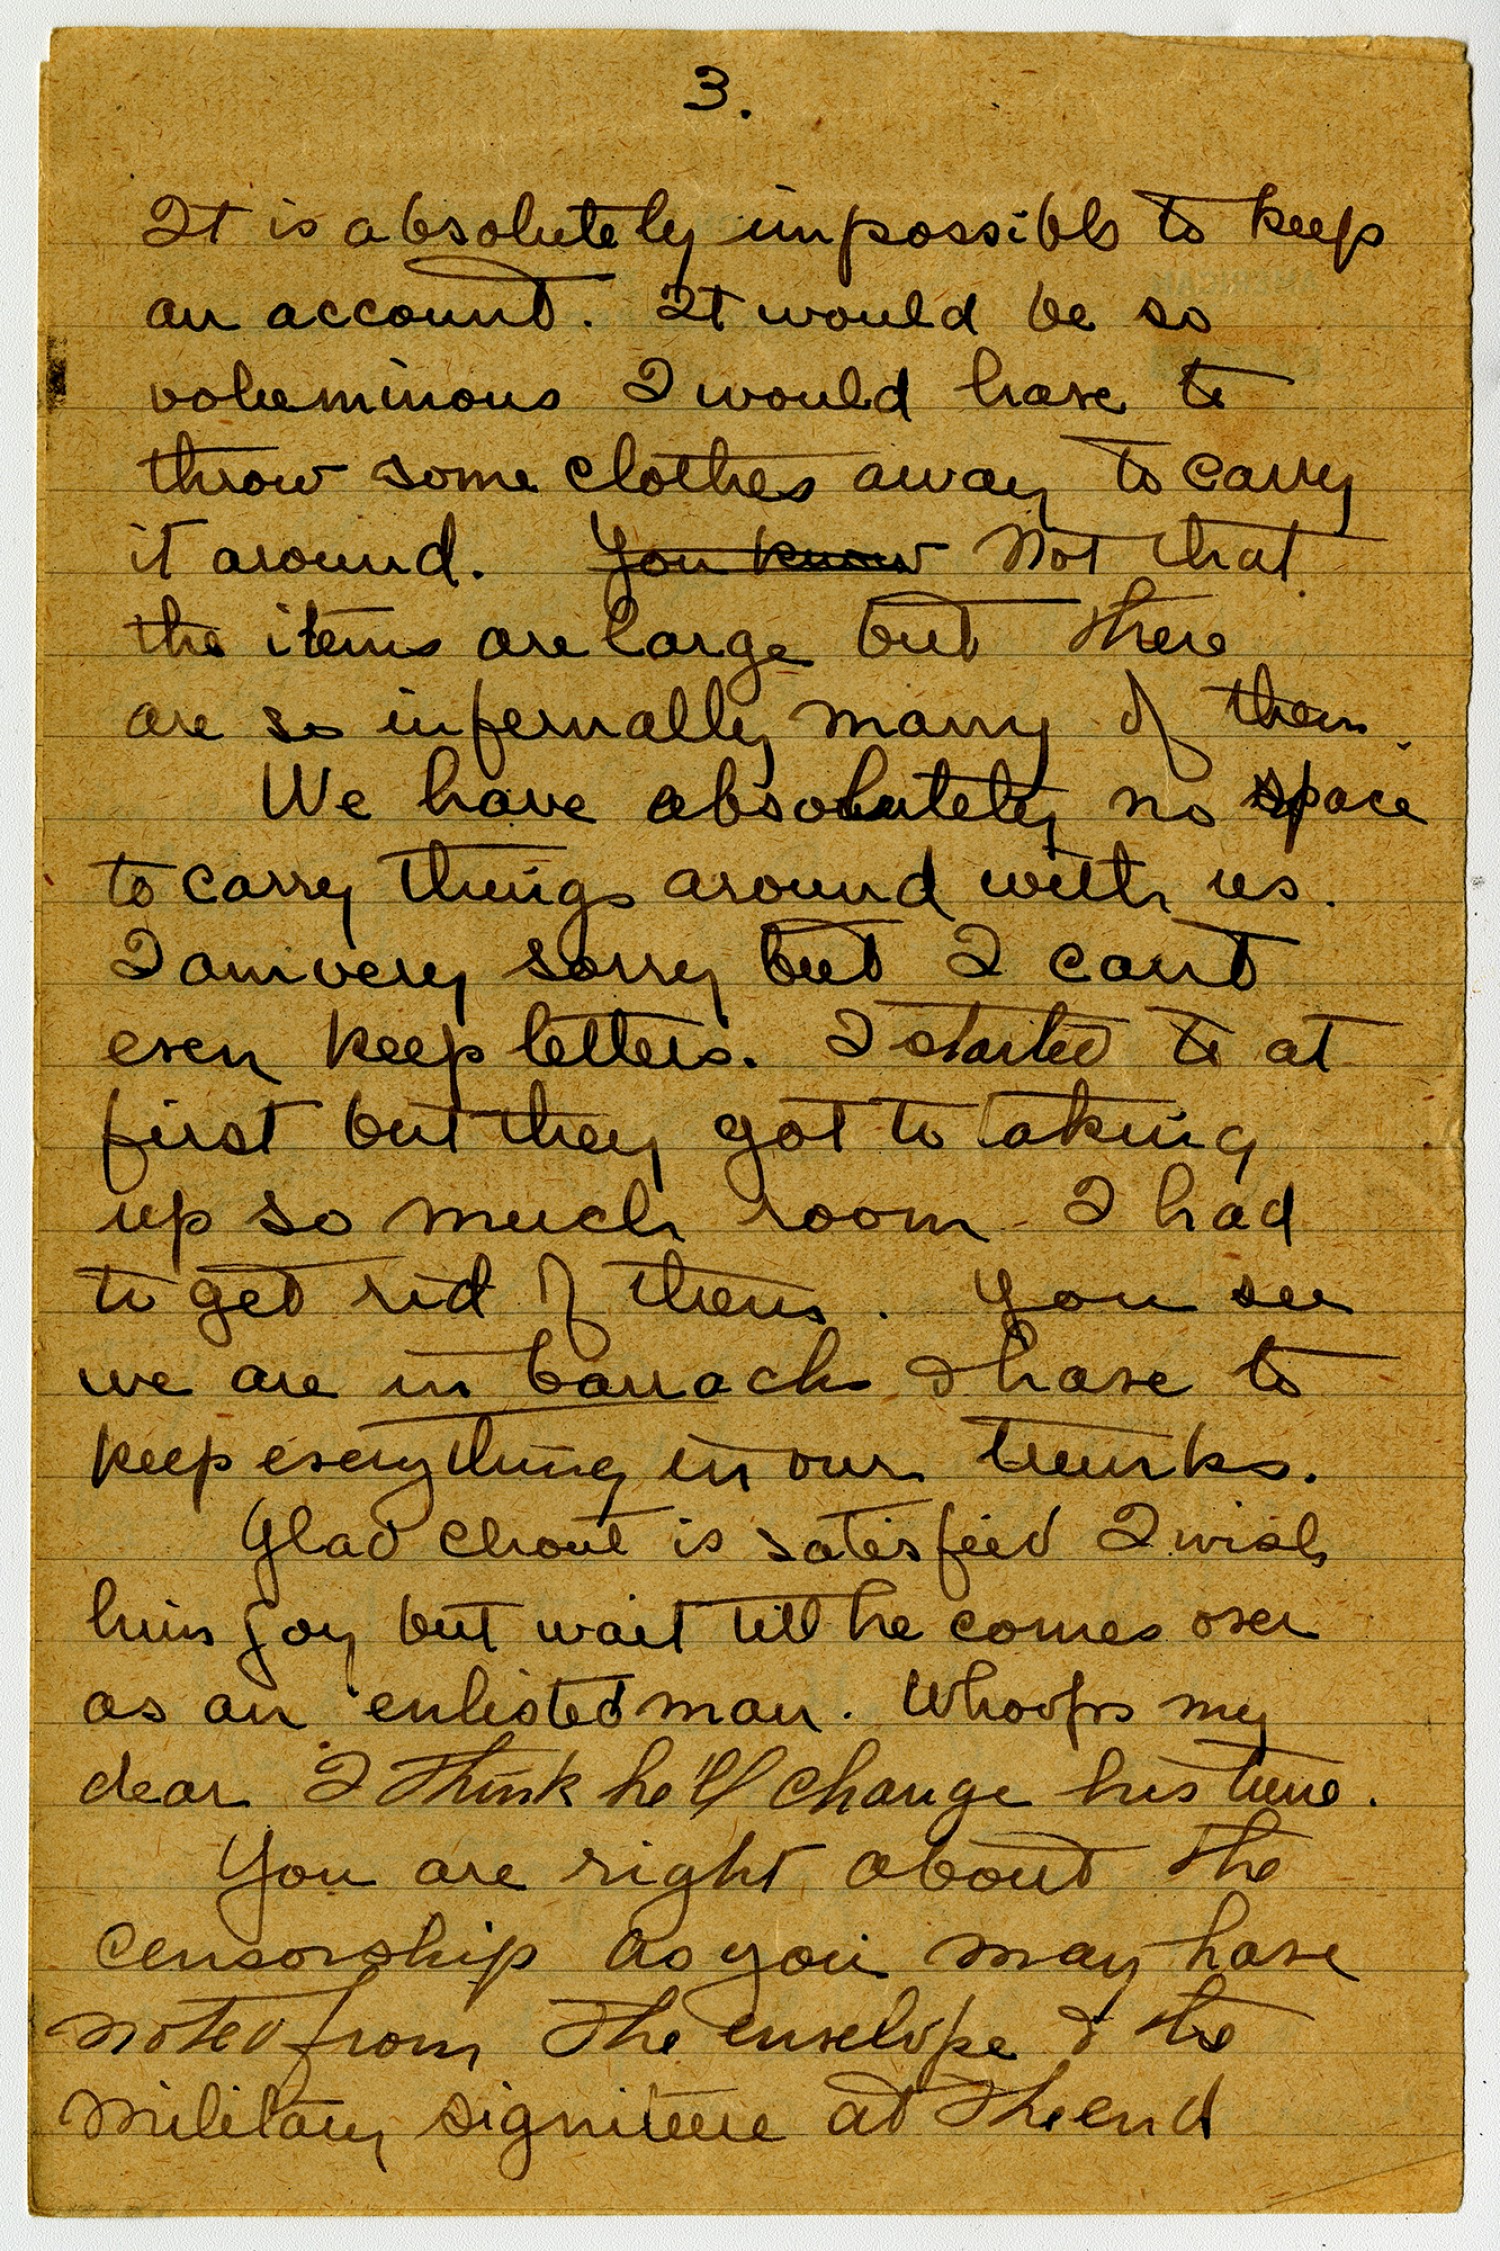 3.
It is absolutely impossible to keep
an account. It would be so
voluminous I would have to
throw some clothes away to carry
it around. You know Not that
the items are large but there
are so infernally many of them.
We have absolutely no space
to carry things around with us.
I am very sorry but I cant
even keep letters. I started to at
first but they got to taking
up so much room I had
to get rid of them. You see
we are in barracks & have to
keep everything in our trunks.
Glad Chout is satisfied I wish
him joy but wait till he comes over
as an enlisted man. Whoops my
dear I think he'll change his tune.
You are right about the
censorship as you may have
noted from the envelope & the
military signiture at the end